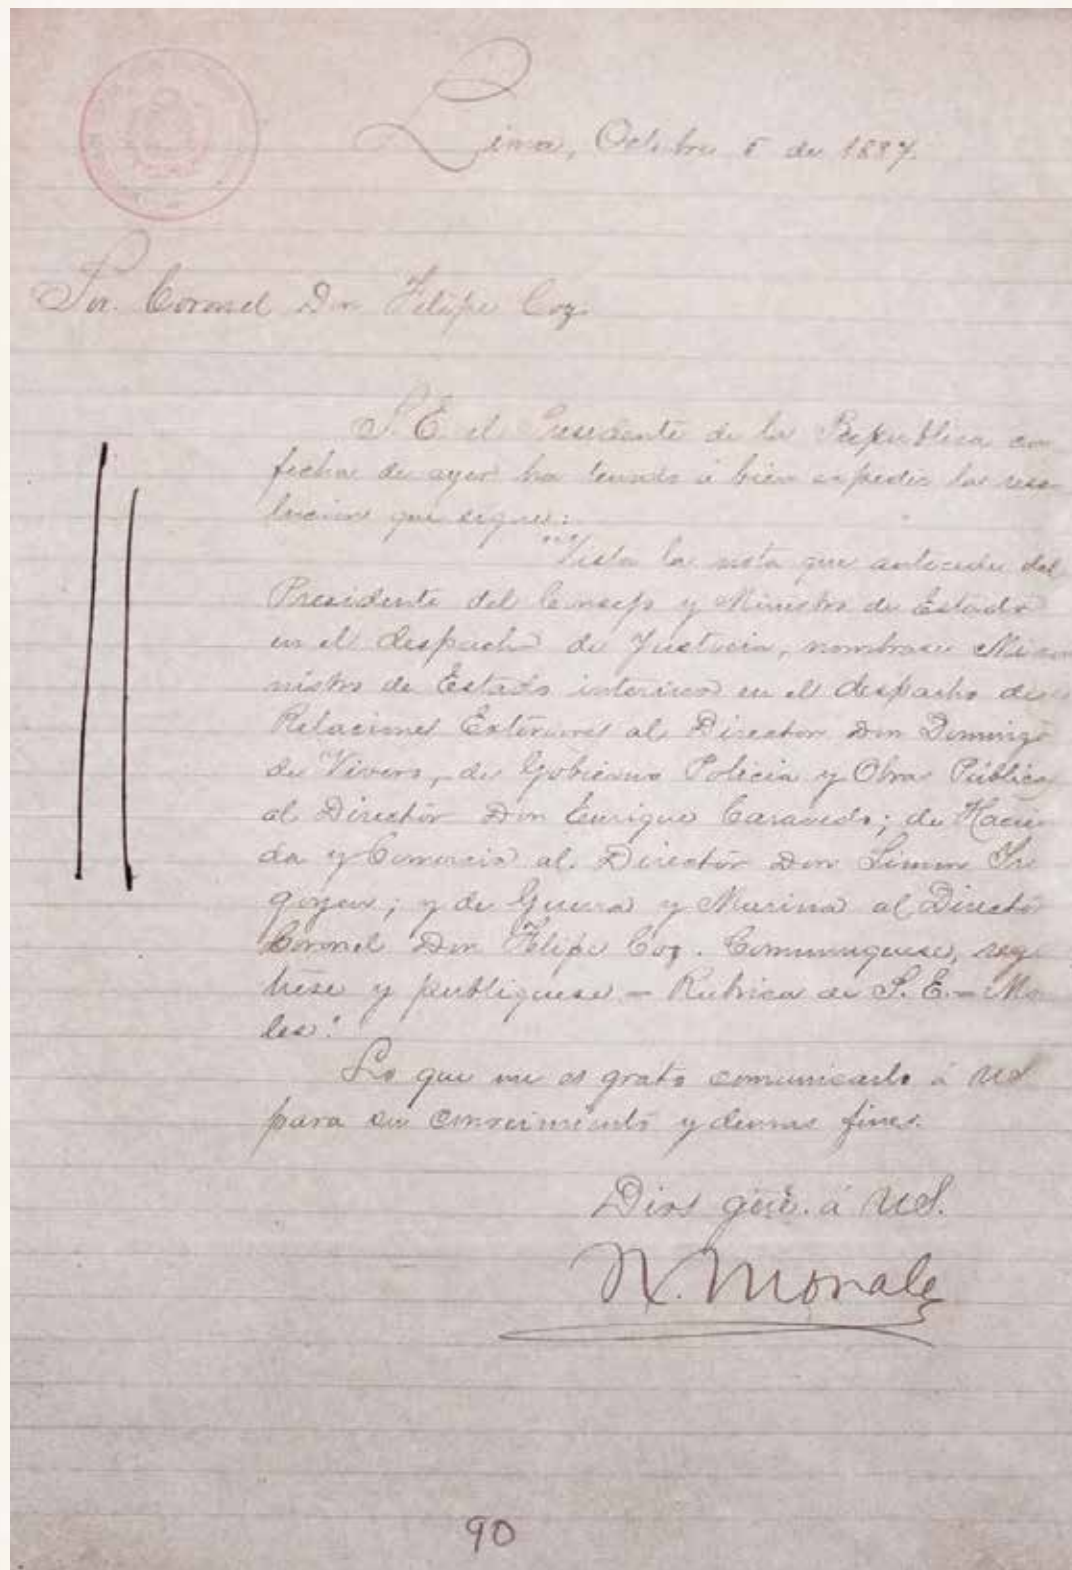 Lima, Octubre 5 de 1887.
Sor. Coronel Don Felipe Coz.
S. E. el Presidente de la República con
fecha de ayer ha tenido á bien expedir la reso
lucion que sigue:
"Vista la nota que antecede del
Presidente del Consejo y Ministro de Estado
en el despacho de Justicia, nombrase Mi
nistro de Estado interino en el despacho de
Relaciones Exteriores al Director Don Domingo
de Vivero, de Gobierno Policia y Obras Públicas
al Director Don Enrique Caravedo; de Hacien
da y Comercio al Director Don Simon Iri
goyen; y de Guerra y Marina al Director
Coronel Don Felipe Coz. Comuniquese, regis
trese y publiquese — Rubrica de S. E. — Mo
les."
Lo que me es grato comunicarlo á US
para su conocimiento y demas fines.
Dios gue. á US.
N. Morales
90